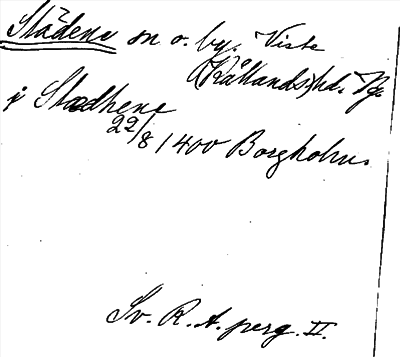 Städene sn o. by. Viste
(Kållands) hd. Vg.
i Stædhene
22/8 1400 Borgholm.
Sv. R. A. perg. II.